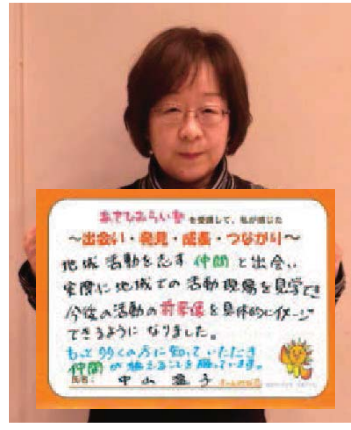 あさひみらい塾を受講して、私が感じた
～出会い・発見・成長・つながり～
地域活動を志す 仲間 と出会い
実際に地域での活動現場を見学でき
今後の活動の将来像を具体的にイメージ
できるように なりました。
もっと多くの方に知っていただき
仲間が増えることを願っています。
氏名： 中山 子